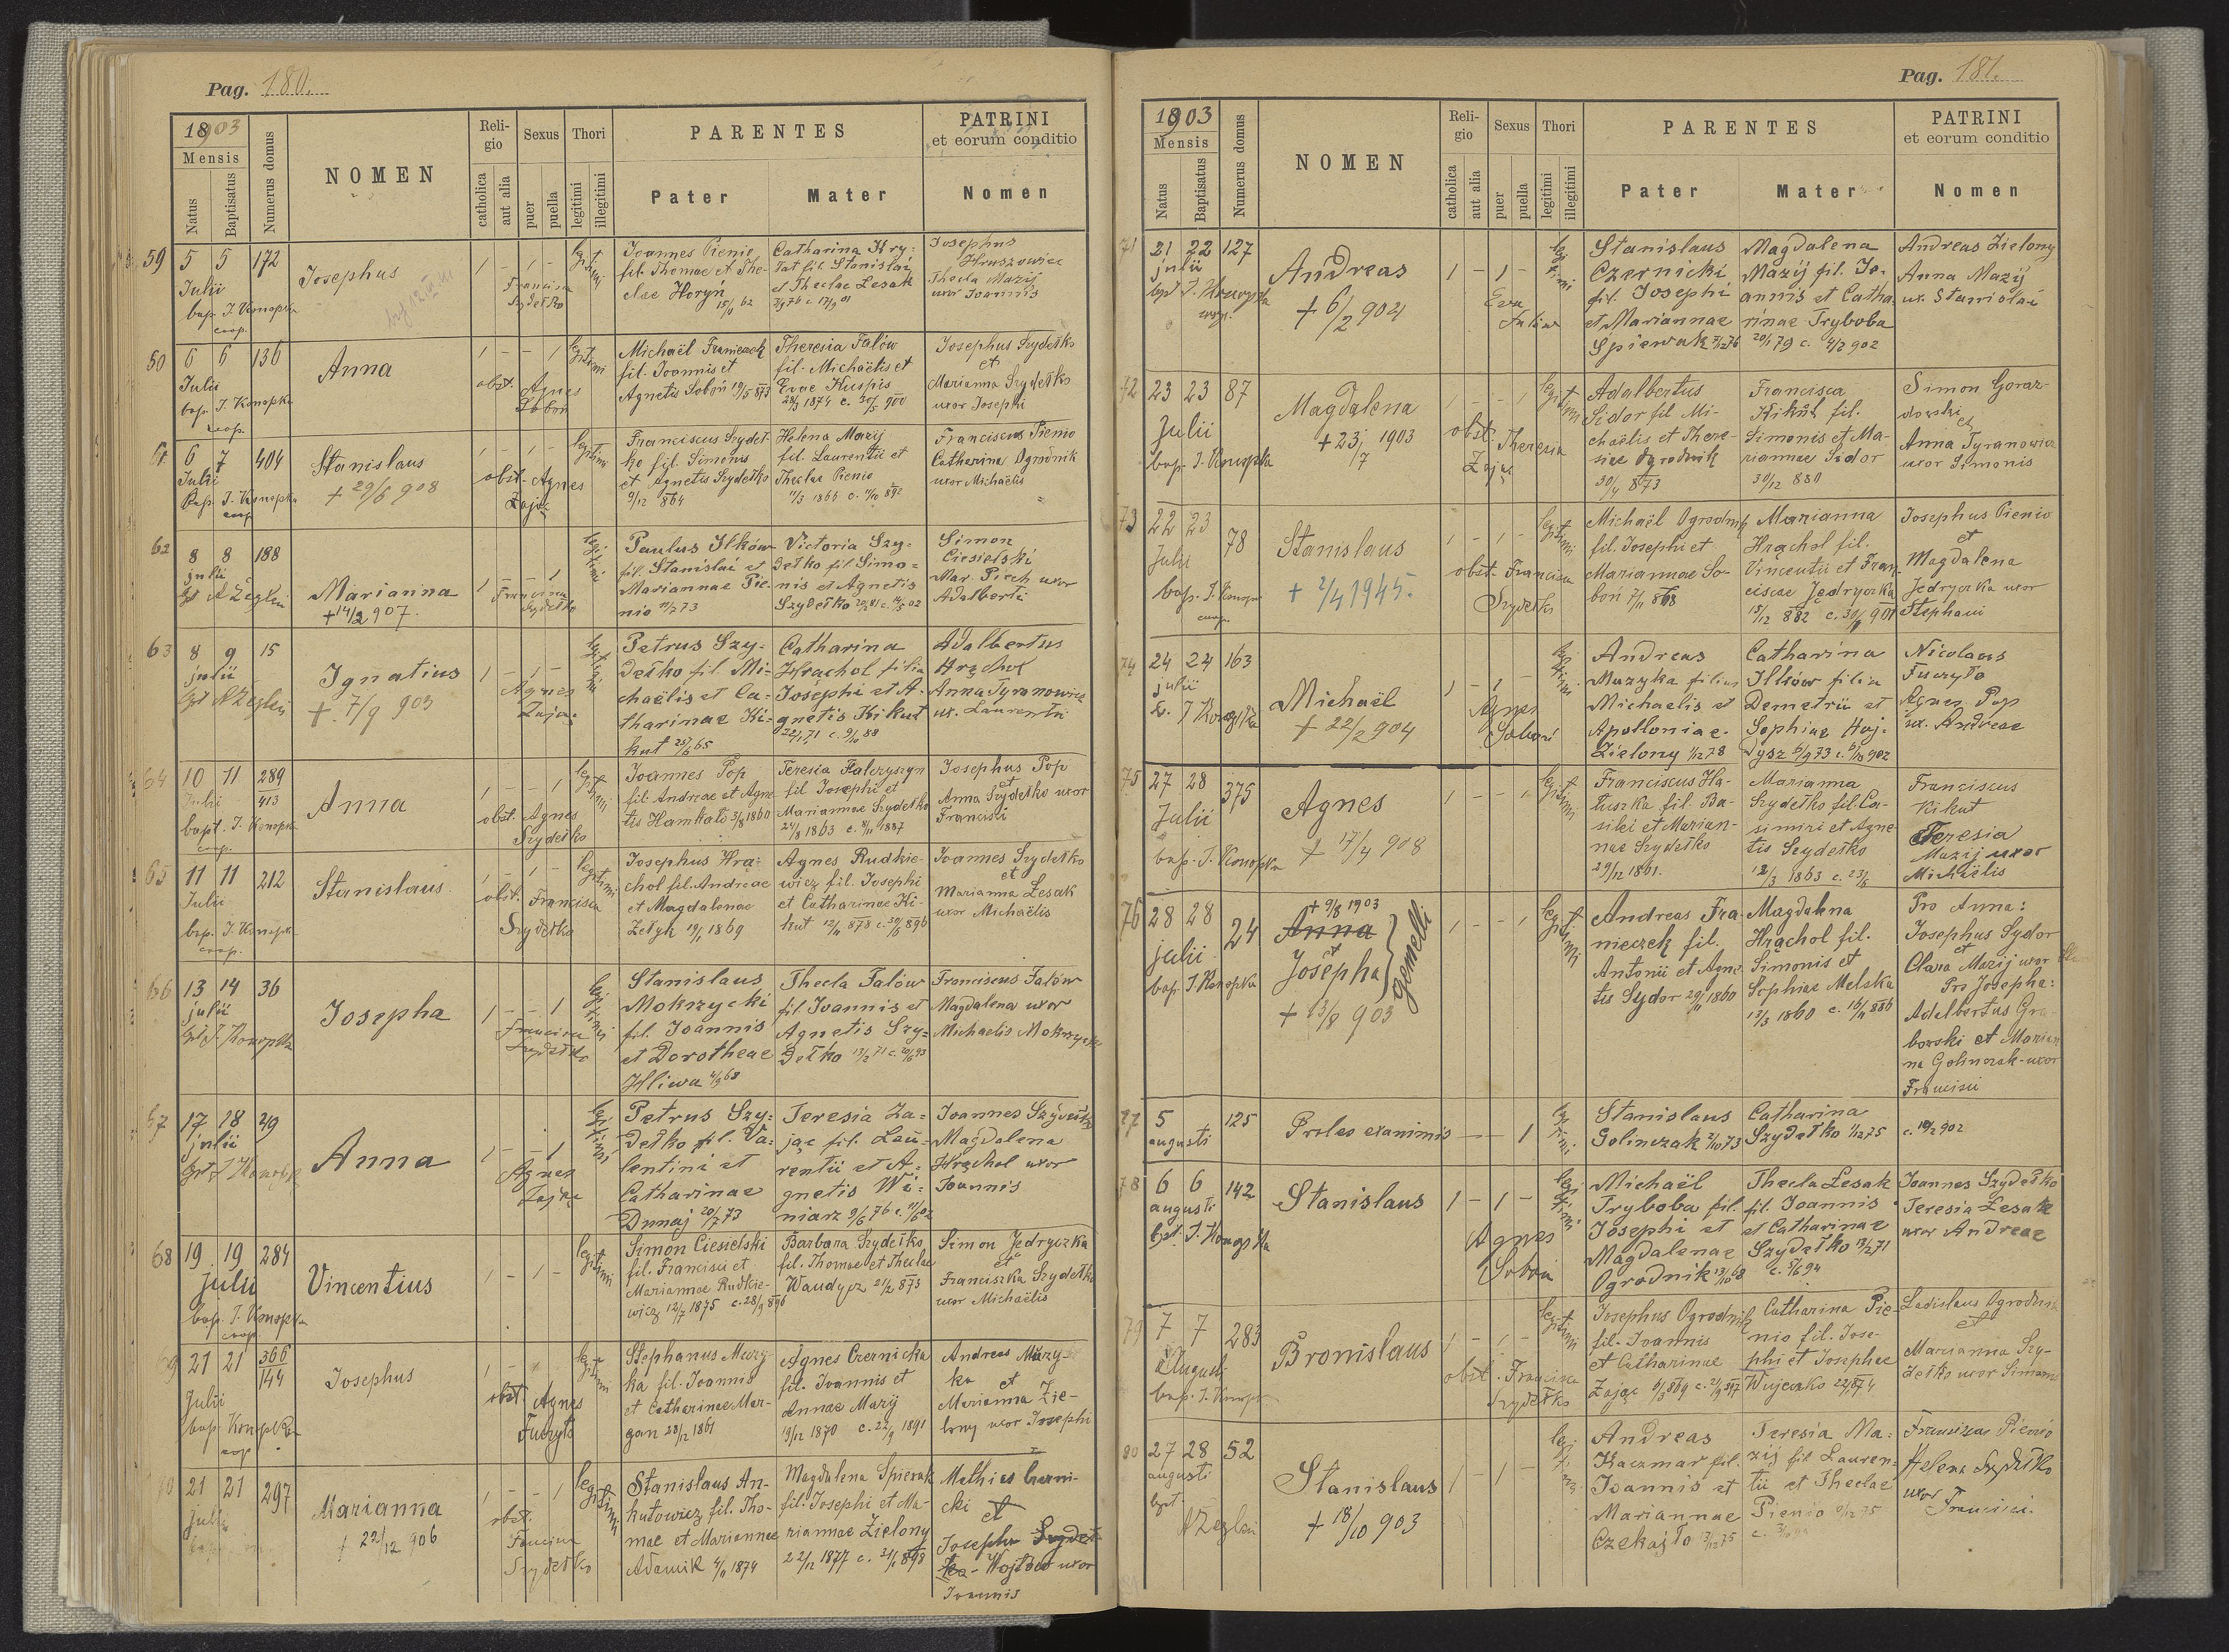 Pag. 180.
1903
Mensis
Natus
Baptisatus
Numerus domus
NOMEN
Religio
catholica
aut alia
Sexus
puer
puella
Thori
legitimi
illegitimi
PARENTES
Pater
Mater
PATRINI
et eorum conditio
Nomen
59 5 5 172
Julii
bap. J. Konopka
coop.
Josephus
1 - 1 -
Francisca
Szydełko
legitimi
Joannes Pienio
fil. Thomae et The-
clae Horyń
15/11 62
Catharina Kry-
fil. Stanislai
et Theclae Lesak
Josephus
Hruszowiec
Thecla Mazij
uxor Joannis
60 6 6 136
Julii
bap. J. Konopka
coop.
Anna
1 - - 1
obst. Agnes
Soboń
legitimi
Michaël Franieczek
fil. Joannis et
Agnetis Soboń 19/5 873
Theresia Falów
fil. Michaëlis et
Evae Huspis
28/3 1874 c. 30/5 900
Josephus Szydełko
et
Marianna Szydełko
uxor Josephi
61 6 7 404
Julii
bap. J. Konopka
coop.
Stanislaus
+ 29/6 908
1 - 1 -
obst. Agnes
Zając
legitimi
Franciscus Szydeł-
ko fil. Simonis
et Agnetis Szydełko
9/12 864
Helena Mazij
fil. Laurentii et
Theclae Pienio
11/3 1866 c. 11/10 892
Franciscus Pienio
Catharina Ogrodnik
uxor Michaëlis
62 8 8 188
julii
bpt A Żeglen
Marianna
+ 14/2 907.
1 - - 1
Francisca
Szydełko
legitimi
Paulus Ilków
fil. Stanislai et
Mariannae Pie-
nio 11/2 73
Victoria Szy-
dełko fil. Simo-
nis et Agnetis
Szydełko
Simon
Ciesielski
Mar. Piech uxor
Adalberti
63 8 9 15
julii
bpt A Żeglen
Ignatius
+ 7/9 903
1 - 1 -
Agnes
Zając
legitimi
Petrus Szy-
dełko fil. Mi-
chaëlis et Ca-
tharinae Ki-
kut 25/6 65
Catharina
Hrąchol filia
Josephi et A-
gnetis Kikut
22/1 71 c. 9/10 88
Adalbertus
Hrąchol
Anna Tyranowicz
ux. Laurentii
64 10 11 289
413
Julii
bapt. J. Konopka
coop.
Anna
1 - - 1
obst. Agnes
Szydełko
legitimi
Joannes Pop
fil. Andreae et Agne-
tis Hamkało 3/8 1860
Teresia Falczyszyn
fil. Josephi et
Mariannae Szydełko
24/8 1863 c. 8/11 1887
Josephus Pop
et
Anna Szydełko uxor
Francisci
65 11 11 212
Julii
bap. J. Konopka
coop.
Stanislaus
1 - 1 -
obst. Francisca
Szydełko
legitimi
Josephus Hrą-
chol fil. Andreae
et Magdalenae
Żełyk 19/1 1869
Agnes Rudkie-
wicz fil. Josephi
et Catharinae Ki-
kut 12/11 878 c. 30/6 896
Joannes Szydełko
et
Marianna Lesak
uxor Michaëlis
66 13 14 36
julii
bpt J. Konopka
Josepha
1 - - 1
Francisca
Szydełko
legitimi
Stanislaus
Mokrzycki
fil. Joannis
et Dorotheae
Hliwa 4/9 68
Thecla Falów
fil. Joannis et
Agnetis Szy-
dełko 17/2 71 c. 20/6 93
Franciscus Falów
Magdalena uxor
Michaelis Mokrzycki
67 17 18 29
julii
bpt J Konopka
Anna
1 - - 1
Agnes
Zając
legitimi
Petrus Szy-
dełko fil. Va-
lentini et
Catharinae
Dunaj 20/7 73
Teresia Za-
jąc fil. Lau-
rentii et A-
gnetis Wi-
niarz 9/6 76 c. 11/6 02
Joannes Szydełko
Magdalena
Hrąchol uxor
Joannis
68 19 19 284
julii
bap. J. Konopka
coop.
Vincentius
1 - 1 -
legitimi
Simon Ciesielski
fil. Francisci et
Mariannae Rudkie-
wicz 12/7 1875
Barbara Szydełko
fil. Thomae et Theclae
Waudycz 21/2 873
c. 28/9 896
Simon Jędryczka
et
Franciszka Szydełko
uxor Michaëlis
69 21 21 366
144
Julii
bap. Konopka
coop.
Josephus
1 - 1 -
obst. Agnes
Fuczyło
legitimi
Stephanus Muzy-
ka fil. Joannis
et Catharinae Mar-
gan 28/12 1861
Agnes Czernicka
fil. Joannis et
Annae Mazij
19/12 1870 c. 22/9 1891
Andreas Muzy-
ka
et
Marianna Zie-
lony uxor Josephi
70 21 21 297
julii
Marianna
+ 22/12 906
1 - - 1
obst.
Francisca
Szydełko
legitimi
Stanislaus An-
kutowicz fil. Tho-
mae et Mariannae
Adamik 4/11 1874
Magdalena Śpiewak
fil. Josephi et Ma-
riannae Zielony
22/12 1877 c. 24/11 898
Mathias Czerni-
cki et
Josepha Szydeł-
ko - Wojtko uxor
Joannis
Pag. 181.
1903
Mensis
Natus
Baptisatus
Numerus domus
NOMEN
Religio
catholica
aut alia
Sexus
puer
puella
Thori
legitimi
illegitimi
PARENTES
Pater
Mater
PATRINI
et eorum conditio
Nomen
71 21 22 127
julii
bpt J. Konopka
coop.
Andreas
+ 6/2 904
1 - 1 -
Eva
legitimi
Stanislaus
Czernicki
fil. Josephi
et Mariannae
Śpiewak 7/12 76
Magdalena
Mazij fil. Jo-
annis et Catha-
rinae Tryboba
20/1 79 c. 4/2 902
Andreas Zielony
Anna Mazij
ux. Stanislai
72 23 23 87
Julii
bap. J. Konopka
Magdalena
+ 23/7 1903
1 - - 1
obst. Theresia
Zając
legitimi
Adalbertus
Sidor fil Mi-
chaëlis et There-
siae Ogrodnik
30/4 873
Francisca
Kikut fil.
Simonis et Ma-
riannae Sidor
30/12 880
Simon Goraz-
dowski
et
Anna Tyranowicz
uxor Simonis
73 22 23 78
Julii
bap. J. Konopka
coop.
Stanislaus
+ 2/4 1945.
1 - 1 -
obst. Francisca
Szydełko
legitimi
Michaël Ogrodnik
fil. Josephi et
Mariannae So-
boń 7/11 868
Marianna
Hrąchol fil.
Vincentii et Fran-
ciscae Jędryczka
15/12 882 c. 30/ 901
Josephus Pienio
et
Magdalena
Jędryczka uxor
Stephani
74 24 24 163
julii
b. J Konopka
Michaël
+ 22/2 904
1 - 1 -
Agnes
Soboń
legitimi
Andreas
Muzyka filius
Michaelis et
Apolloniae
Zielony 1/12 78
Catharina
Ilków filia
Demetrii et
Sophiae Hoj-
dysz 6/9 73 c. 6/10 902
Nicolaus
Fuczyło
Agnes Pop
ux. Andreae
75 27 28 375
Julii
bap. J. Konopka
Agnes
+ 17/4 908
1 - - 1
legitimi
Franciscus Ha-
łuszka fil. Ba-
silii et Marian-
nae Szydełko
29/12 1861.
Marianna
Szydełko fil. Ca-
simiri et Agne-
tis Szydełko
12/3 1863 c. 23/8
Franciscus
Kikut
Teresia
Mazij uxor
Michaëlis
76 28 28 24
julii
bap. J Konopka
+ 9/8 1903
Anna
et
Josepha
gemelli
+ 13/8 903
1 - - 1
legitimi
Andreas Fra-
nieczek fil.
Antonii et Agne-
tis Sydor 29/11 1860
Magdalena
Hrąchol fil.
Simonis et
Sophiae Melska
13/3 1860 c. 16/11 880
Pro Anna:
Josephus Sydor
et
Clara Mazij uxor
Pro Josepha:
Adalbertus Gra-
bowski et Marian-
na Golinczak uxor
Francisci
77 5 125
augusti
Proles exanimis
- - 1
legitimi
Stanislaus
Golinczak 2/10 73
Catharina
Szydełko 1/12 75
c. 10/2 902
78 6 6 142
augusti
bpt. J. Konopka
Stanislaus
1 - 1 -
Agnes
Soboń
legitimi
Michaël
Tryboba fil.
Josephi et
Magdalenae
Ogrodnik 13/10 68
Thecla Lesak
fil. Joannis
et Catharinae
Szydełko 13/2 71
c. 5/6 94
Joannes Szydełko
Teresia Lesak
uxor Andreae
79 7 7 283
Augusti
bap. J. Konopka
Bronislaus
1 - 1 -
obst. Francisca
Szydełko
legitimi
Josephus Ogrodnik
fil. Joannis
et Catharinae
Zając 6/3 869 c. 2/9 897
Catharina Pie-
nio fil. Jose-
phi et Josephae
Wujeczko 22/ 874
Ladislaus Ogrodnik
et
Marianna Szy-
dełko uxor Simonis
80 27 28 52
augusti
bpt.
A Żeglen
Stanislaus
+ 18/10 903
1 - 1 -
Andreas
Kaczmar fil.
Joannis et
Mariannae
Czekajło 13/12 75
Teresia Ma-
zij fil Lauren-
tii et Theclae
Pienio 9/12 75
Pienio
Helena Szydełko
uxor
Francisci.